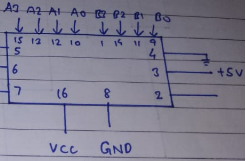 A3 A2 A1 A0 B3 B2 B1 B0
15 13 12 10 1 14 11 9
5 4
6 3 +5V
7 16 8 2
VCC GND